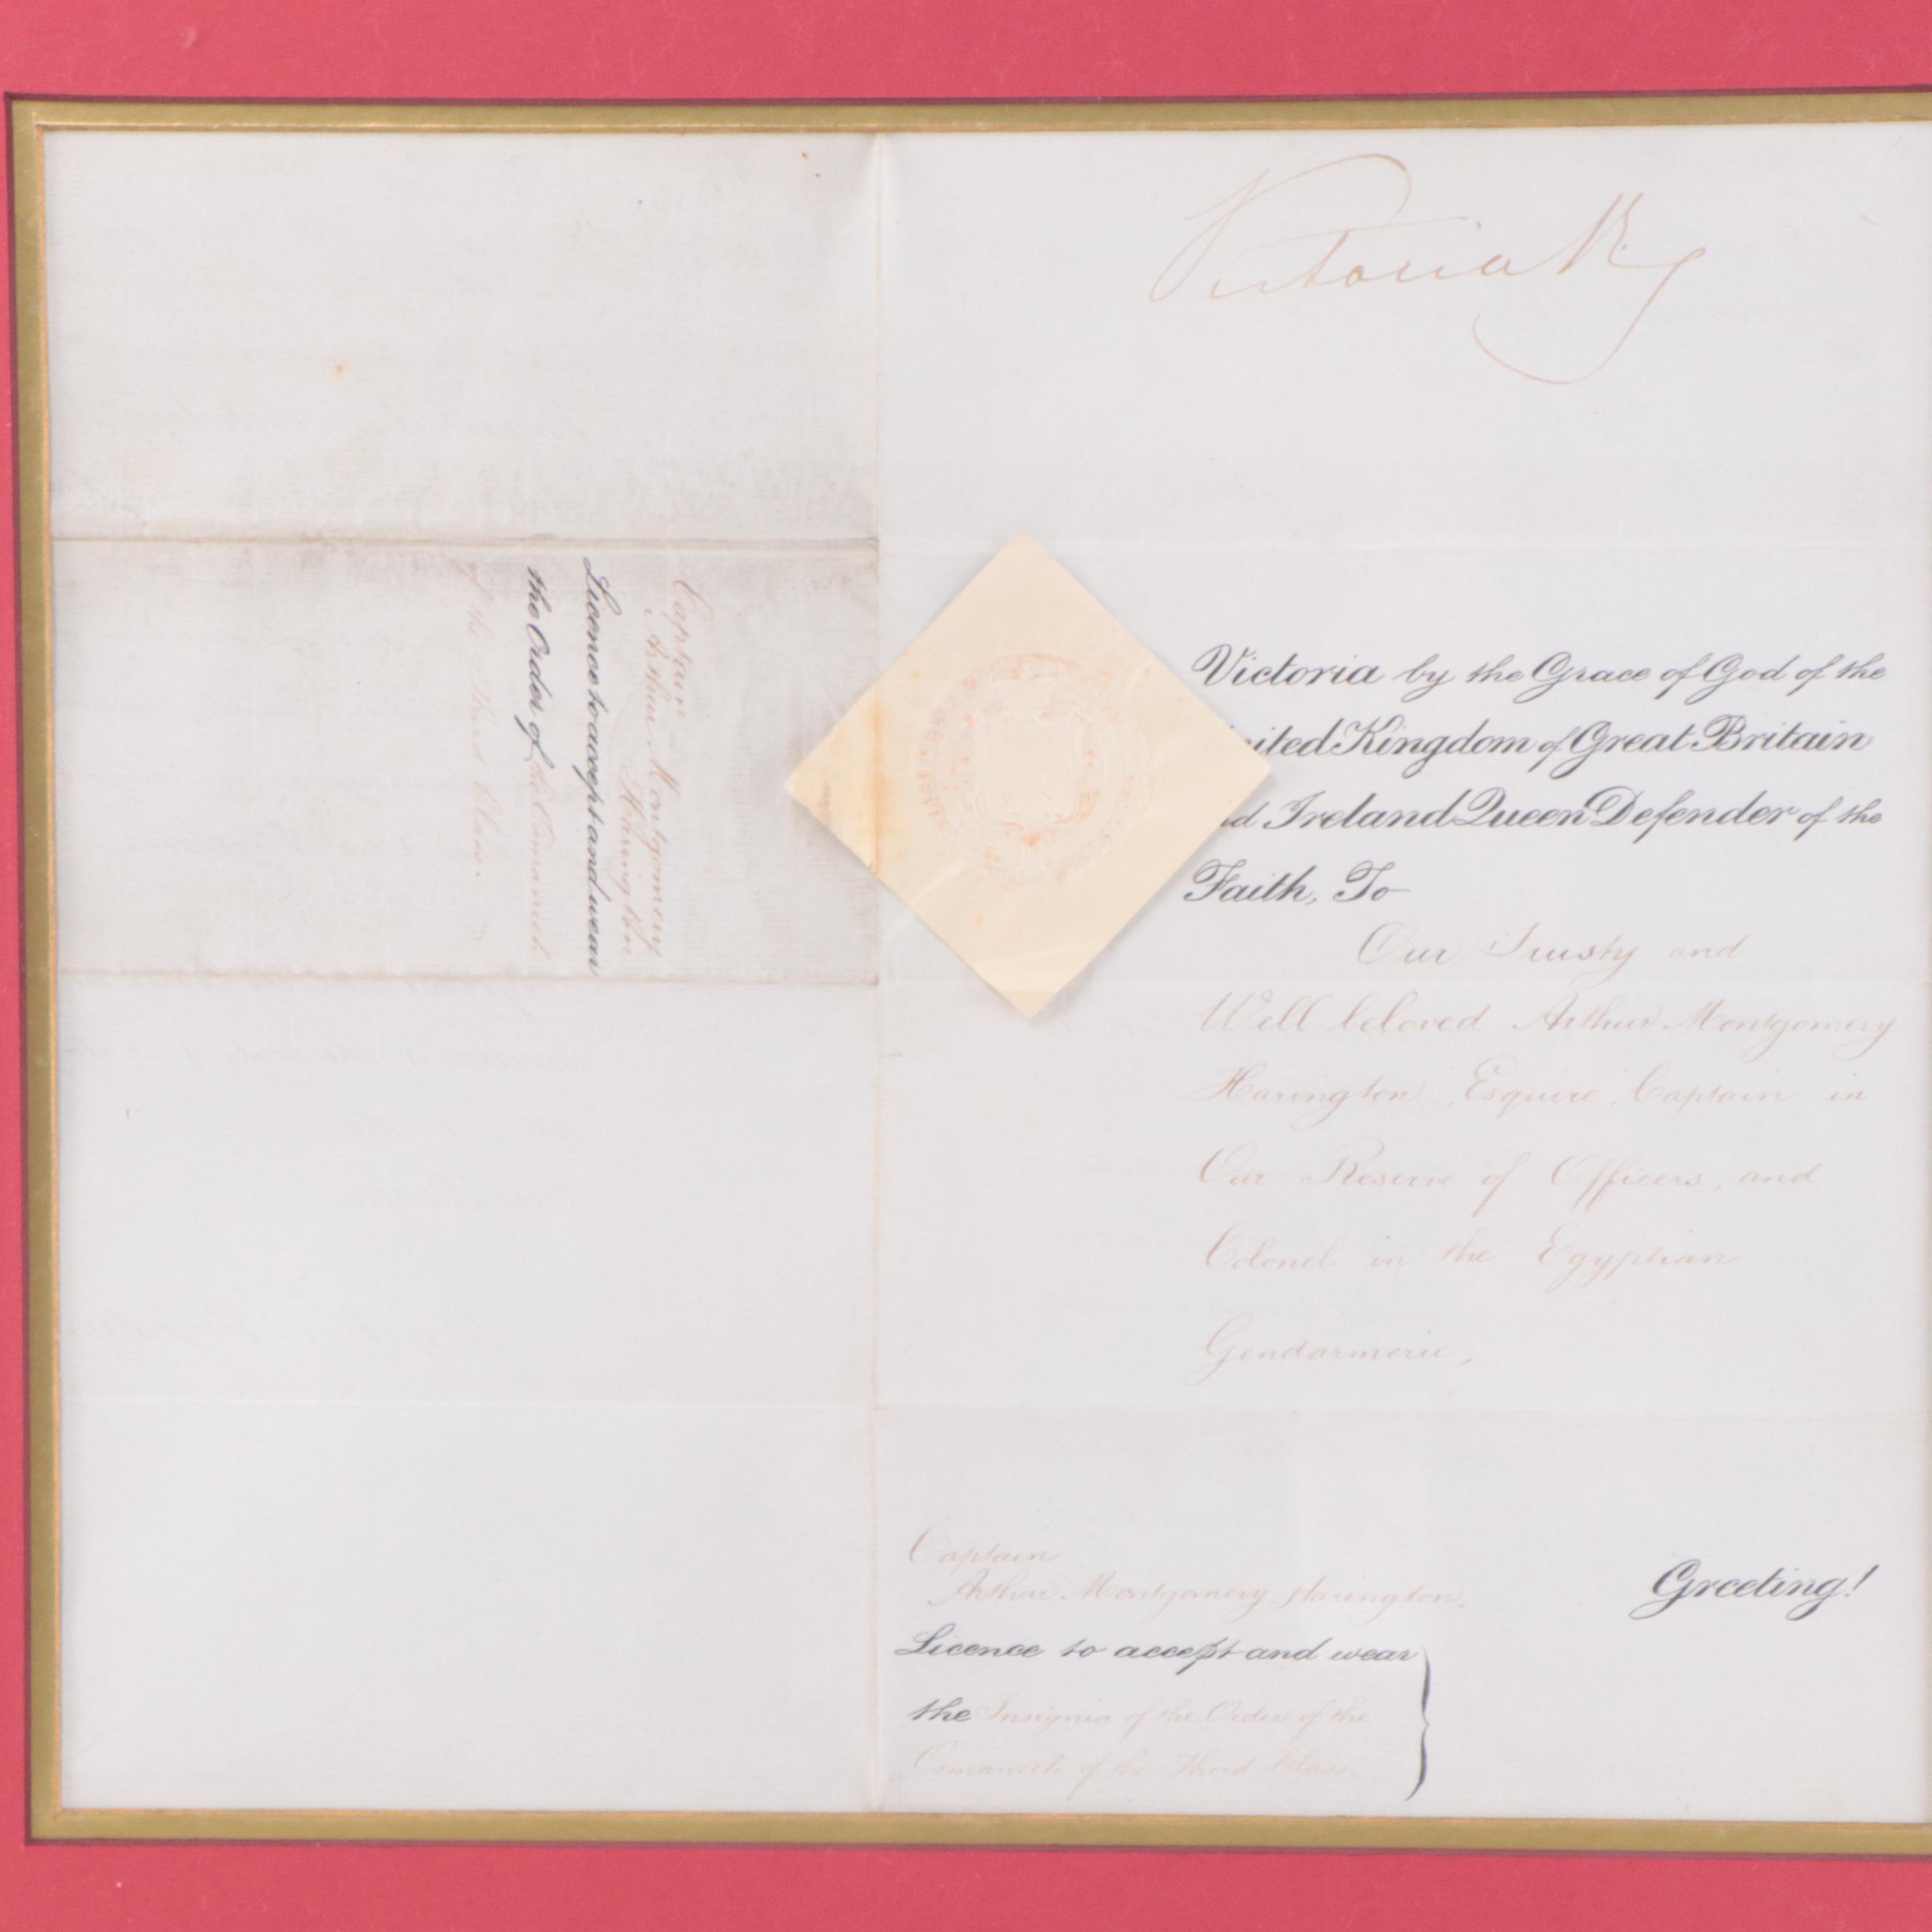 Victoria R
Victoria by the Grace of God of the
ited Kingdom of Great Britain
d Ireland Queen Defender of the
Faith, To
Our Trusty and
Well beloved Arthur Montgomery
Harington Esquire, Captain in
Our Reserve of Officers, and
Colonel in the Egyptian
Gendarmerie,
Greeting!
Captain
Arthur Montgomery Harington.
Licence to accept and wear
the Insignia of the Order of the
Osmanieh of the Third Class
Captain
Arthur Montgomery
Harington
Licence to accept and wear
the Order of the Osmanieh
of the Third Class.